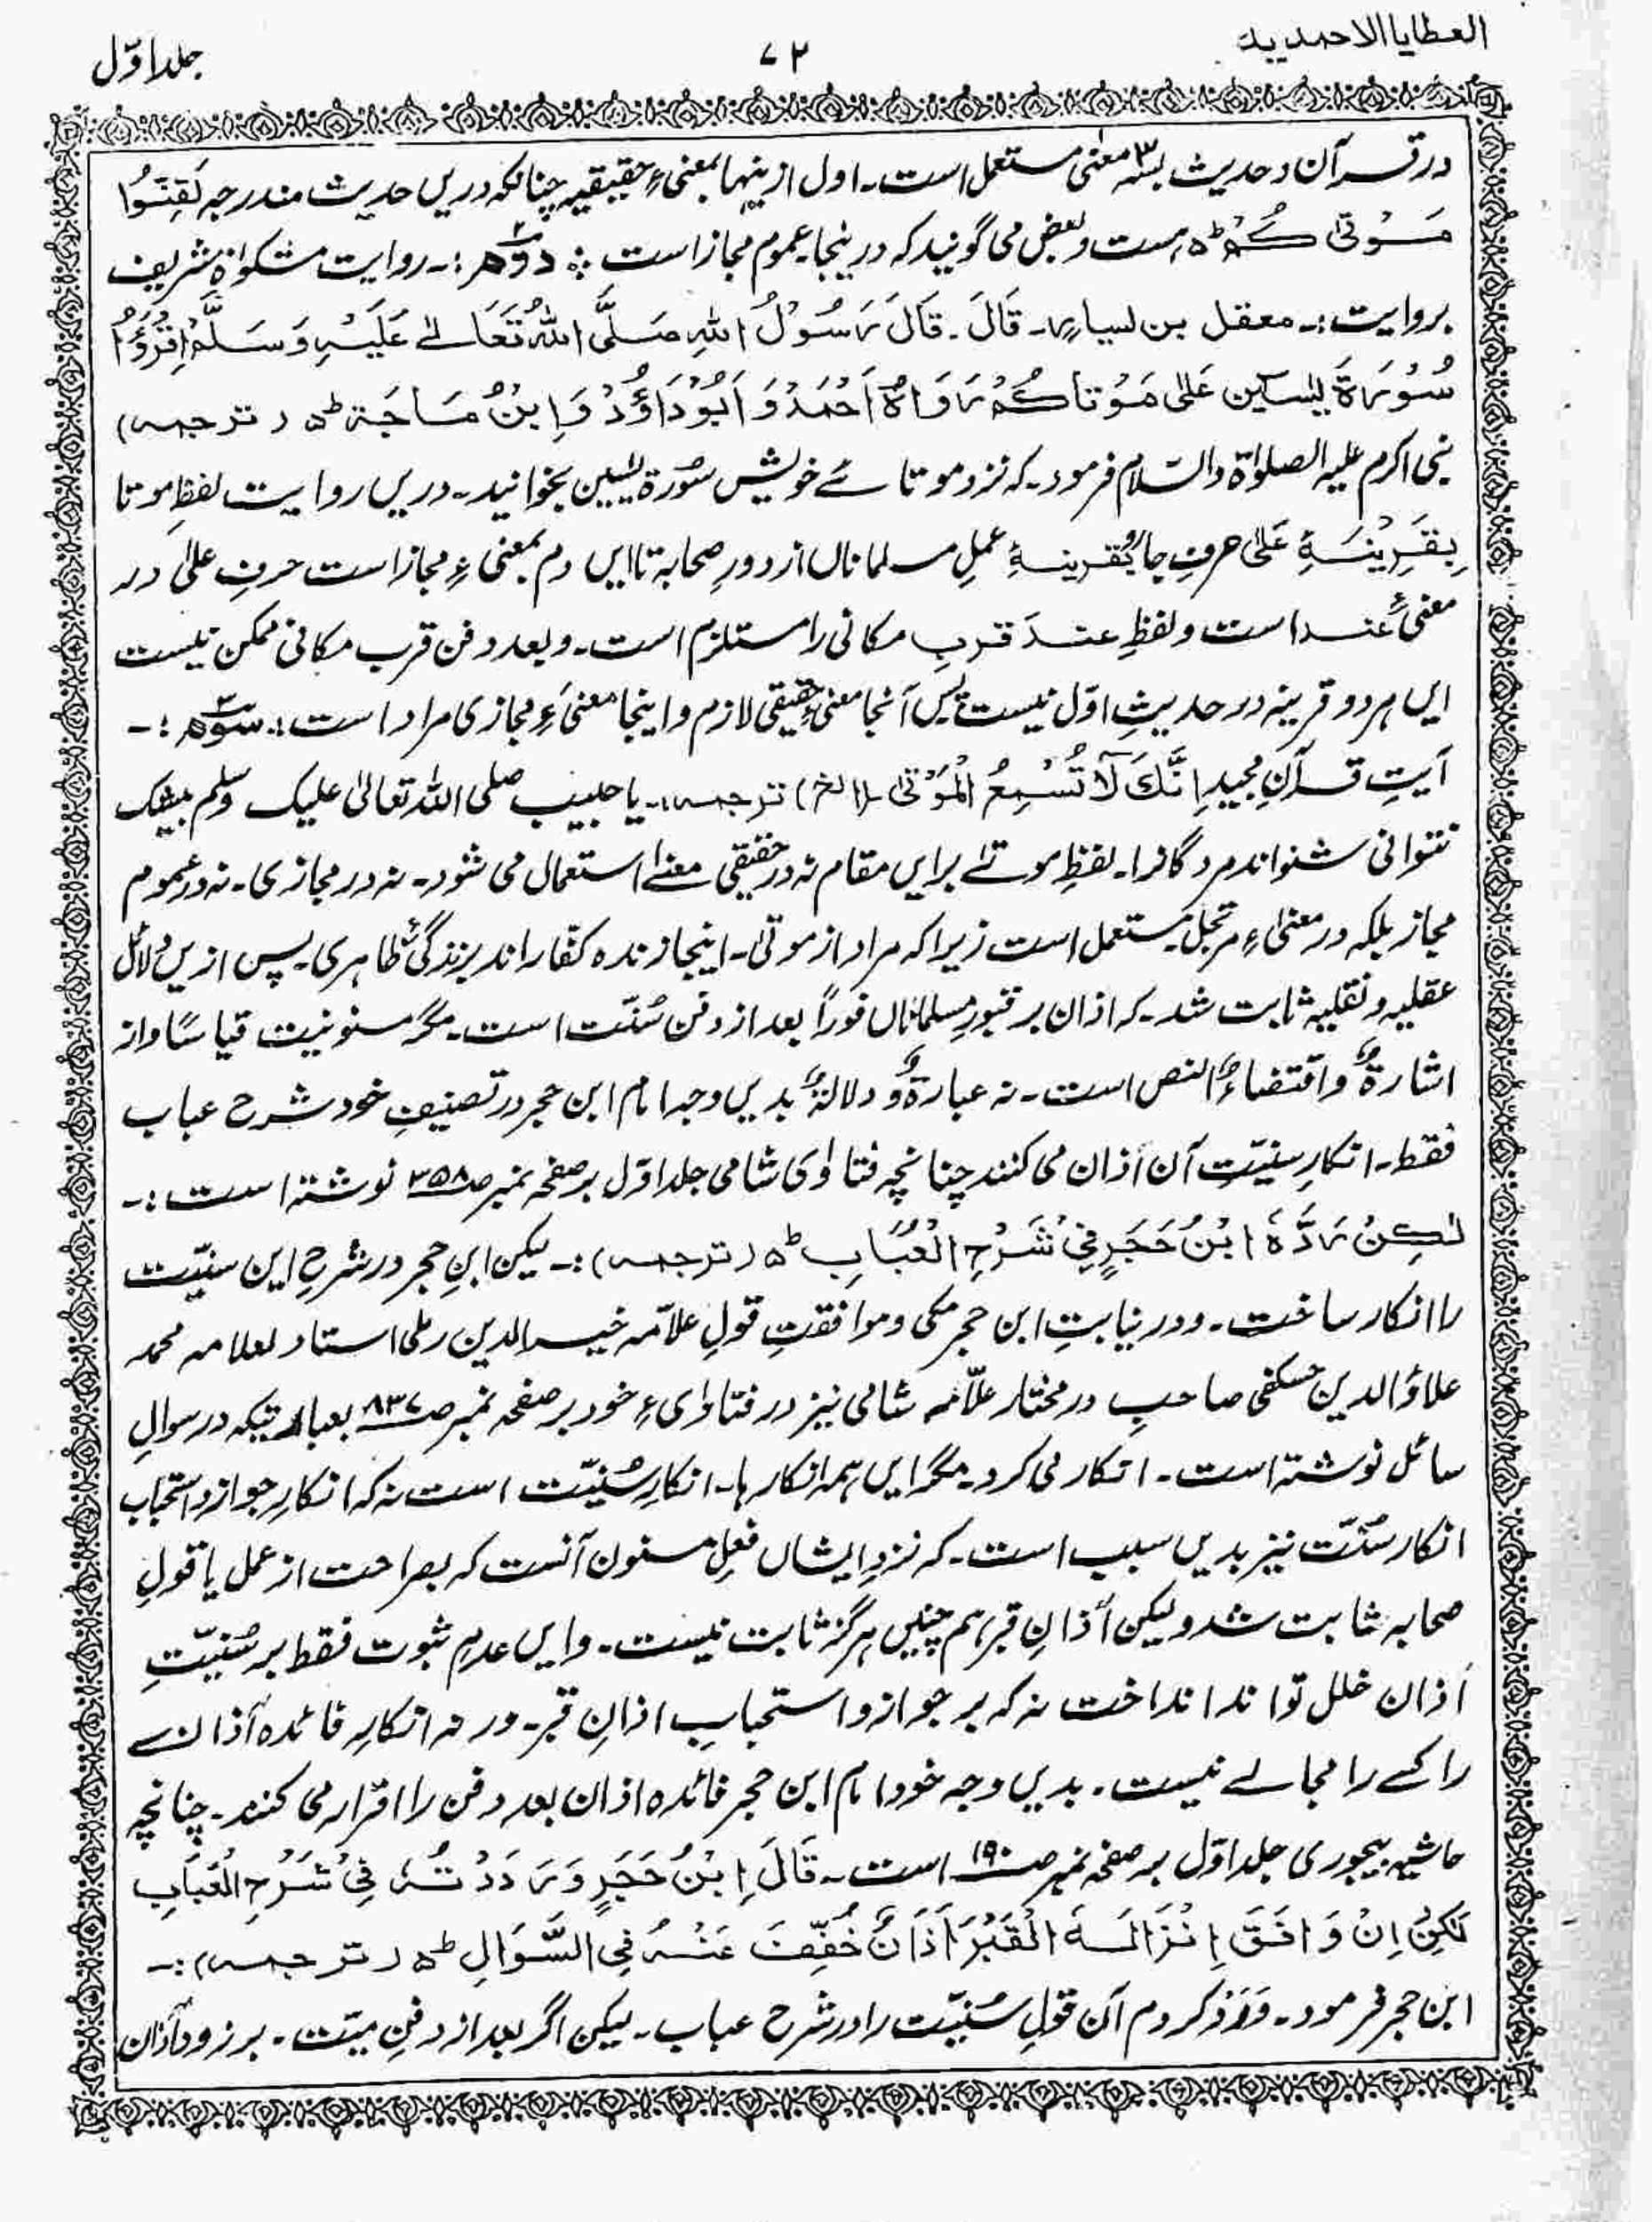 العطایا الاحمدیه ۷۲ جلد اوّل
در قرآن و حدیث بسہ۳ معنٰی مستعمل است۔ اول ازینہا بمعنیٔ حقیقیہ چنانکہ دریں حدیث مندرجہ لَقِّنُوْا
مَوْتٰی کُمْ ط ہست و بعض می گویند کہ درینجا عموم مجاز است ؞ دوم۲ :۔ روایت مشکوٰۃ شریف
بروایت :۔ معقل بن یسار۔ قَالَ۔ قَالَ رَسُوْلُ اللہِ صَلَّی اللہُ تَعَالٰے عَلَیْہِ وَسَلَّمْ اِقْرَؤُا
سُوْرَۃَ یٰسین عَلٰی مَوْتَاکُمْ رَوَاہُ اَحْمَدُ وَ اَبُوْدَاوُدْ وَ اِبْنُ مَاجَۃ ط ۵ ( ترجمہ )
نبی اکرم علیہ الصلوٰۃ والسّلام فرمود۔ کہ نزد موتائے خویش سُورۃ یٰسین بخوانید۔ دریں روایت لفظِ موتا
بِقَرِیْنَۂِ عَلٰی حرفِ جار و بقرینۂِ عملِ مسلماناں از دورِ صحابہ تا ایں دم بمعنیٔ مجاز است حرفِ علٰی در
معنیٔ عند است و لفظِ عندَ قربِ مکانی را مستلزم است۔ و بعد دفن قرب مکانی ممکن نیست
ایں ہر دو قرینہ در حدیثِ اوّل نیست پس آنجا معنیٔ حقیقی لازم و اینجا معنیٔ مجازی مراد است :۔ سوّم۳ :۔
آیتِ قرآنِ مجید اِنَّکَ لَا تُسْمِعُ الْمَوْتٰی (الخ) ترجمہ :۔ یا حبیب صلی اللہ تعالٰی علیک وسلم بیشک
نتوانی شنواند مردگانرا۔ لفظِ موتٰے برایں مقام نہ در حقیقی معنٰے استعمال می شود۔ نہ در مجازی۔ نہ در عموم
مجاز بلکہ در معنیٔ مرتجل مستعمل است زیرا کہ مراد از موتٰی۔ اینجا زندہ کفار اند بزندگیٔ ظاہری۔ پس ازیں دلائل
عقلیہ و نقلیہ ثابت شد۔ کہ اذان بر قبورِ مسلماناں فوراً بعد از دفن سُنّت است۔ مگر مسنونیت قیاسًا و از
اشارۃٌ و اقتضاءٌ النص است۔ نہ عبارۃٌ و دلالۃٌ بدیں وجہ امام ابن حجر در تصنیفِ خود شرح عباب
فقط۔ انکارِ سنیّتِ آن اَذان می کنند چنانچہ فتاوٰی شامی جلد اوّل بر صفحہ نمبر صـ۳۵۸ نوشتہ است :۔
لٰکِنْ رَدَّہٗ ابْنُ حَجَرٍ فِیْ شَرْحِ الْعُبَابِ ط ۵ ( ترجمہ ) :۔ لیکن ابنِ حجر در شرحِ این سنیّت
را انکار ساخت۔ و در نیابتِ ابن حجر مکی و موافقتِ قولِ علاّمہ خیر الدین رملی استاد لعلامہ محمد
علاؤ الدین حسکفی صاحبِ در مختار علاّمہ شامی نیز در فتاوٰیٔ خود بر صفحہ نمبر صـ۸۳۷ بعبارتیکہ در سوالِ
سائل نوشتہ است۔ انکار می کرد۔ مگر ایں ہمہ انکار ہا۔ انکارِ سُنیّت است نہ کہ انکارِ جواز و استحباب
انکار سُنّت نیز بدیں سبب است۔ کہ نزدِ ایشاں فعلِ مسنون آنست کہ بصراحت از عمل یا قولِ
صحابہ ثابت شد و لیکن اَذانِ قبر ہم چنیں ہرگز ثابت نیست۔ و ایں عدمِ ثبوت فقط بر سُنیّتِ
اَذان خلل تواند انداخت نہ کہ بر جواز و استحبابِ اذانِ قبر۔ ورنہ انکارِ فائدہ اَذانے
را کسے را مجالے نیست۔ بدیں وجہ خود امام ابن حجر فائدہ اذان بعد دفن را اقرار می کنند۔ چنانچہ
حاشیہ بیجوری جلد اوّل بر صفحہ نمبر صـ۱۹۰ است۔ قَالَ اِبْنُ حَجَرٍ وَرَدَدْتُہٗ فِیْ شَرْحِ الْعُبَابِ
لٰکِنْ اِنْ وَافَقَ اِنْزَالَہُ الْقَبْرَ اَذَانٌ خُفِّفَ عَنْہُ فِی السَّوَالِ ط ۵ ( ترجمہ ) :۔
ابن حجر فرمود۔ و رد کردم آن قولِ سُنیّت را در شرح عباب۔ لیکن اگر بعد از دفنِ میّت۔ برزودآذان